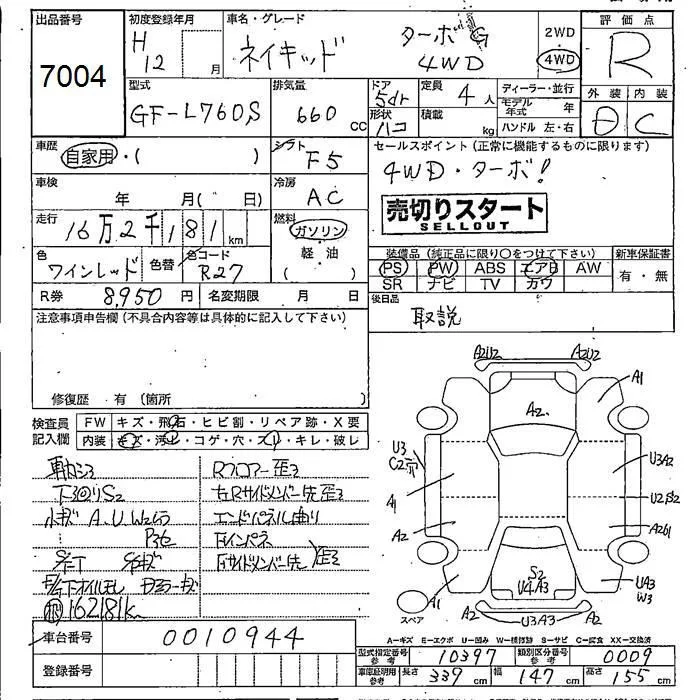 出品番号
7004
初度登録年月
H 12 月
車名・グレード
ネイキッド ターボG 4WD
2WD
4WD
評価点
R
型式
GF-L760S
排気量
660 cc
ドア
5dr
形状
ハコ
定員
4 人
積載
kg
ディーラー・並行
モデル年式 年
ハンドル 左・右
外装 内装
C
車歴
自家用・( )
シフト
F5
セールスポイント(正常に機能するものに限ります)
4WD・ターボ!
売切りスタート
SELLOUT
車検
年 月( 日)
冷房
AC
走行
16万2千181 km
燃料
ガソリン
(軽油)
色
ワインレッド
色替
色コード
R27
装備品(純正品に限り○をつけて下さい)
PS PW ABS エアB AW
SR ナビ TV カワ
新車保証書
有・無
R券 8,950 円
名変期限 月 日
後日品
取説
注意事項申告欄(不具合内容等は具体的に記入して下さい)
修復歴 有(箇所
検査員記入欄
FW キズ・飛石・ヒビ割・リペア跡・X要
内装 キズ・汚れ・コゲ・穴・スレ・キレ・破レ
下回りS2
小キズ A.U.W2
Rフロアー歪
エンドパネル曲り
162181km
車台番号
0010944
登録番号
A2U2 A2U2
A1
A2
U3
C2穴
U3A2
A1
U2S2
A2
A2U1
S2
U4A3
UA3
W3
A1
スペア
A2 U3A3 A2
A−キズ E−エクボ U−凹み W−補修跡 S−サビ C−腐食 XX−交換済
型式指定番号参考 10397
類別区分番号参考 0009
車庫証明用参考 長さ 339 cm 幅 147 cm 高さ 155 cm